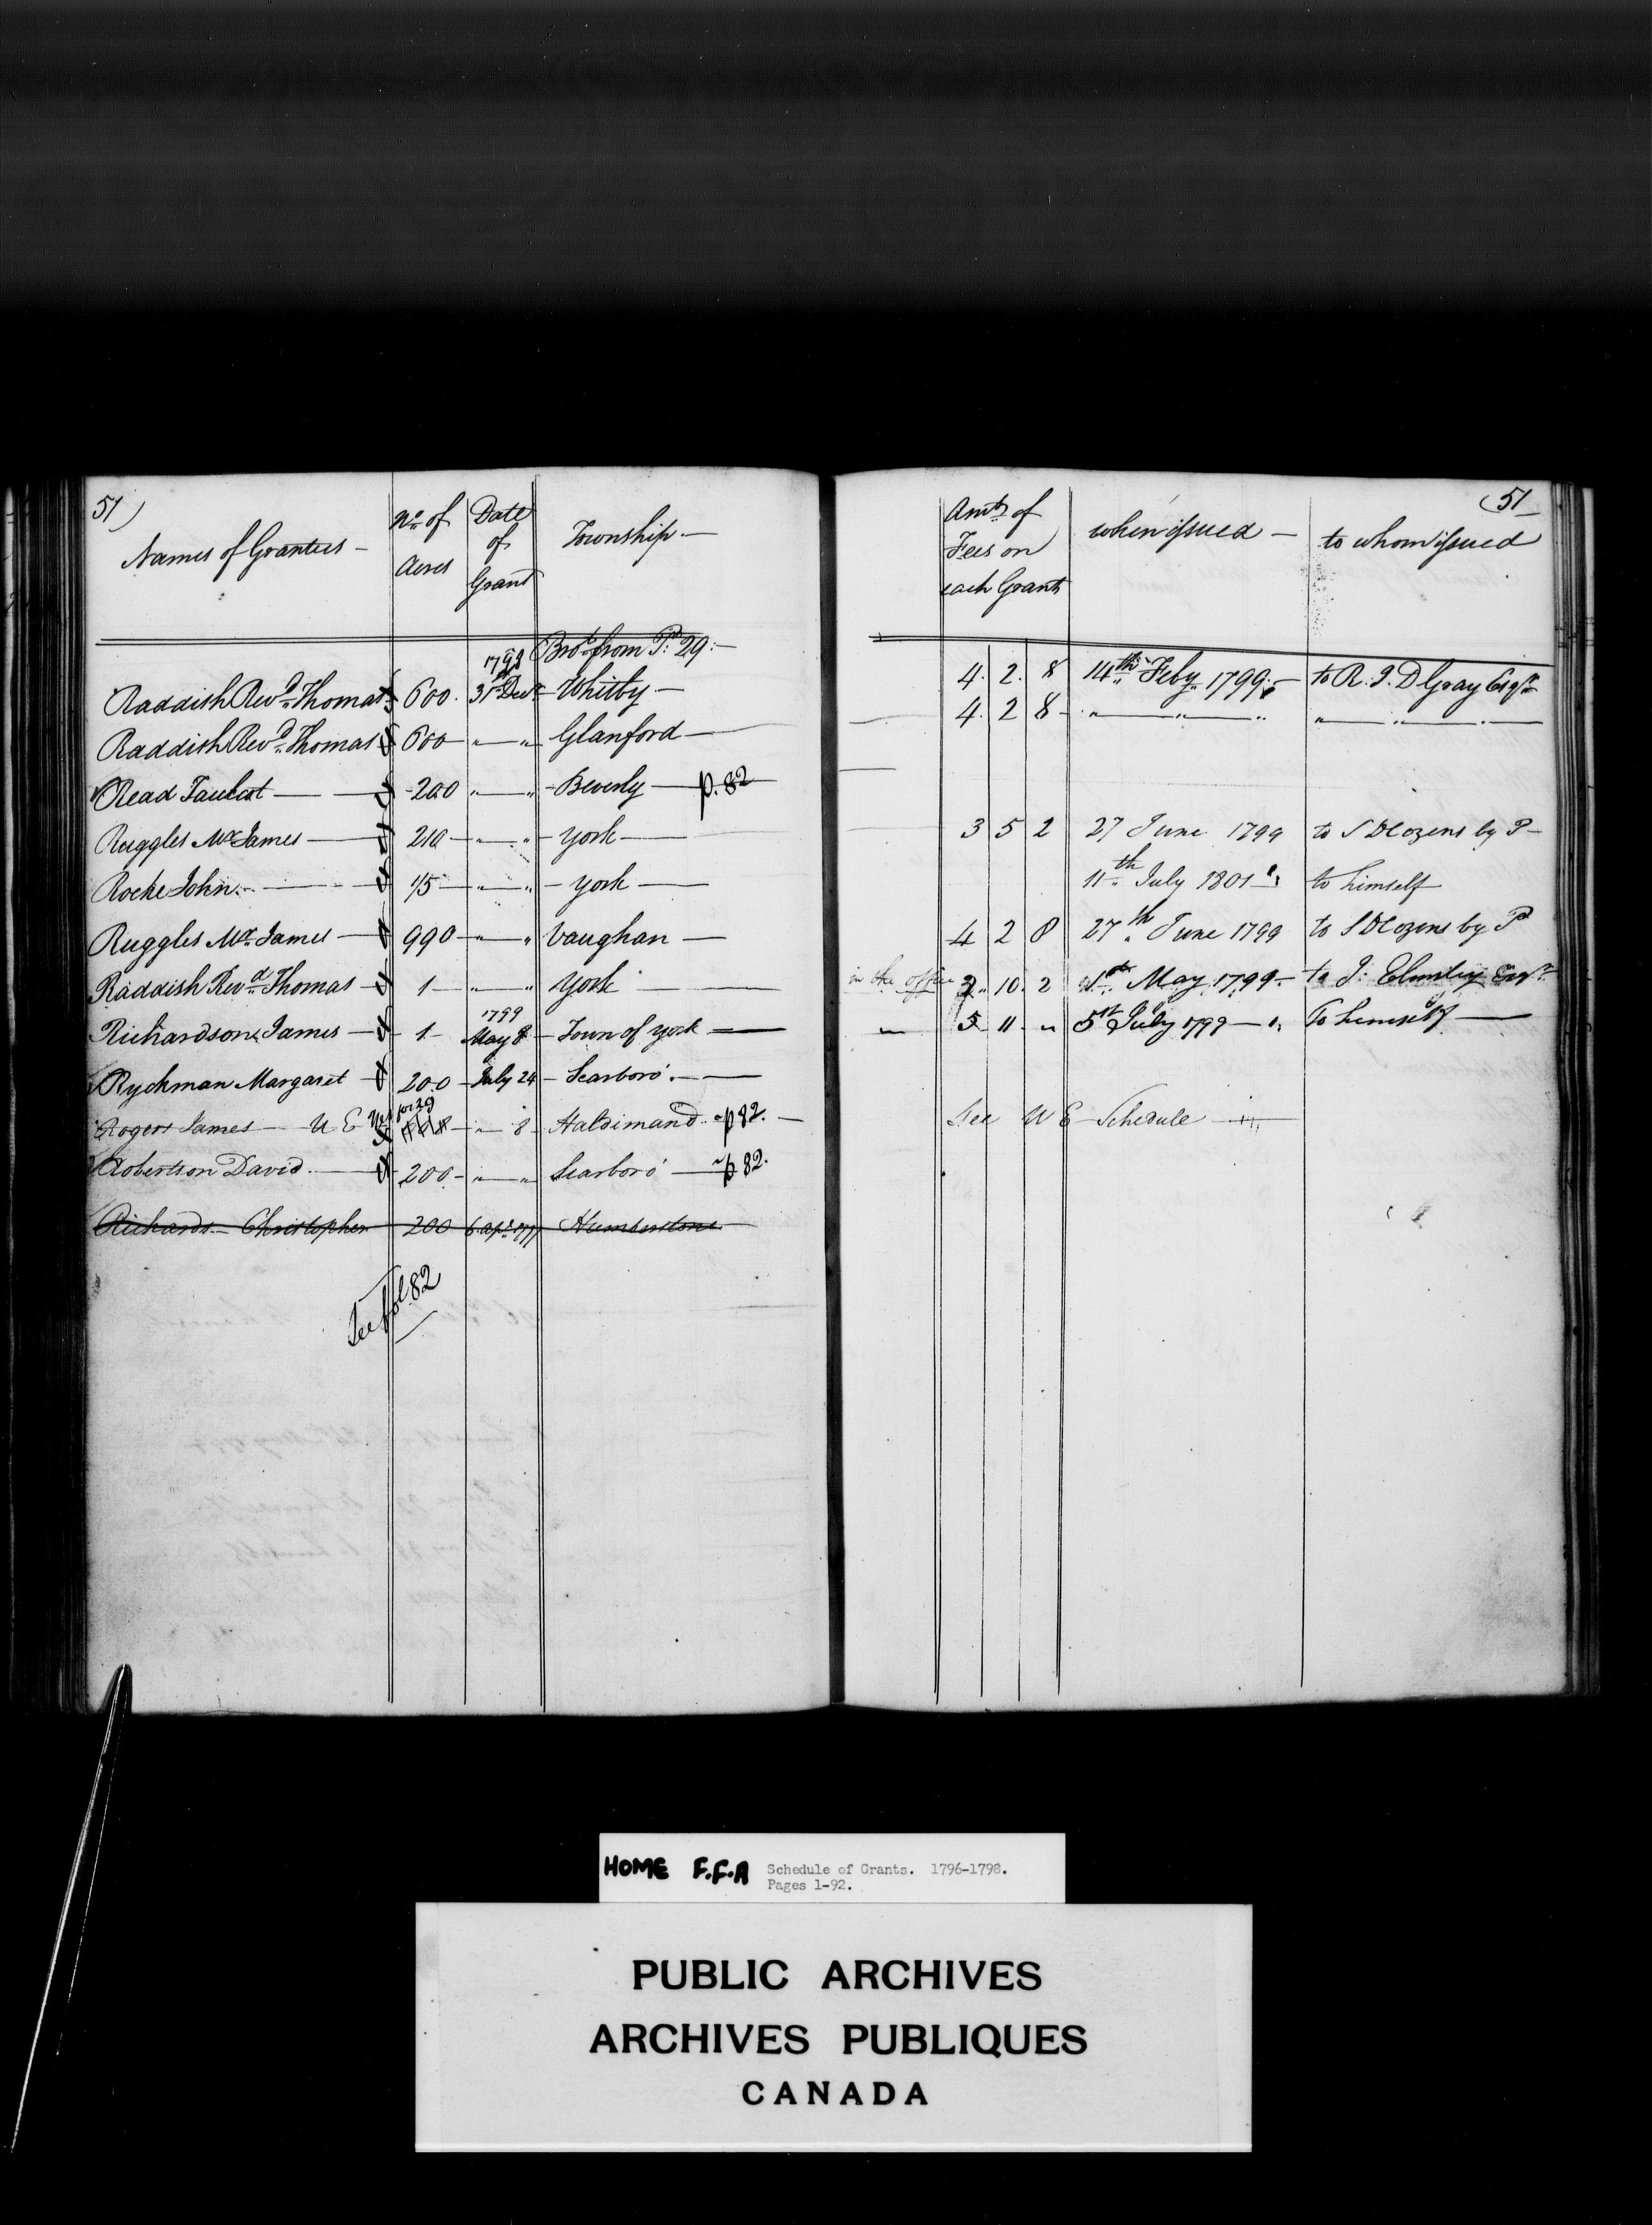 51)
Names of Grantees –
No. of Acres
Date of Grant
Township. –
Brot. from P. 29: –
Raddish Revd. Thomas 600. 1798 31st Decr. Whitby –
Raddish Revd. Thomas 600 – " – " Glanford –
Read – 200 – " – " – Beverly – p. 82
Ruggles Mr. James – 210 – " – " – York –
Rocke John. – 1/5 – " – " – York –
Ruggles Mr. James – 990 – " – " Vaughan –
Raddish Revd. Thomas – 1 – " – " York –
Richardson James – 1 – 1799 May 8 – Town of York –
Ryckman Margaret – 200 – July 24 – Scarboro'. –
Rogers James – U E – " 8 – Haldimand – p 82. –
Robertson David. – 200 – " – " Scarboro' – p 82.
Richards – Christopher 200 6 Apl. 1797 Humberstone
See fol. 82
(51
Amt. of Fees on each Grant
when issued –
to whom issued
4. 2. 8 14th. Feby. 1799. – to R. I. D Gray Esqr.
4. 2 8 – " – " – " " – " – " –
3 5 2 27 June 1799 to S D Cozens by P –
11th. July 1801 to himself
4 2 8 27th. June 1799 to S D Cozens by P
in the office 2 10. 2 1st. May 1799 – to J: Elmsley Esqr.
" 5 11 " 5 July 1799 – To himself –
See U E Schedule –
HOME F.F.A Schedule of Grants. 1796-1798.
Pages 1-92.
PUBLIC ARCHIVES
ARCHIVES PUBLIQUES
CANADA